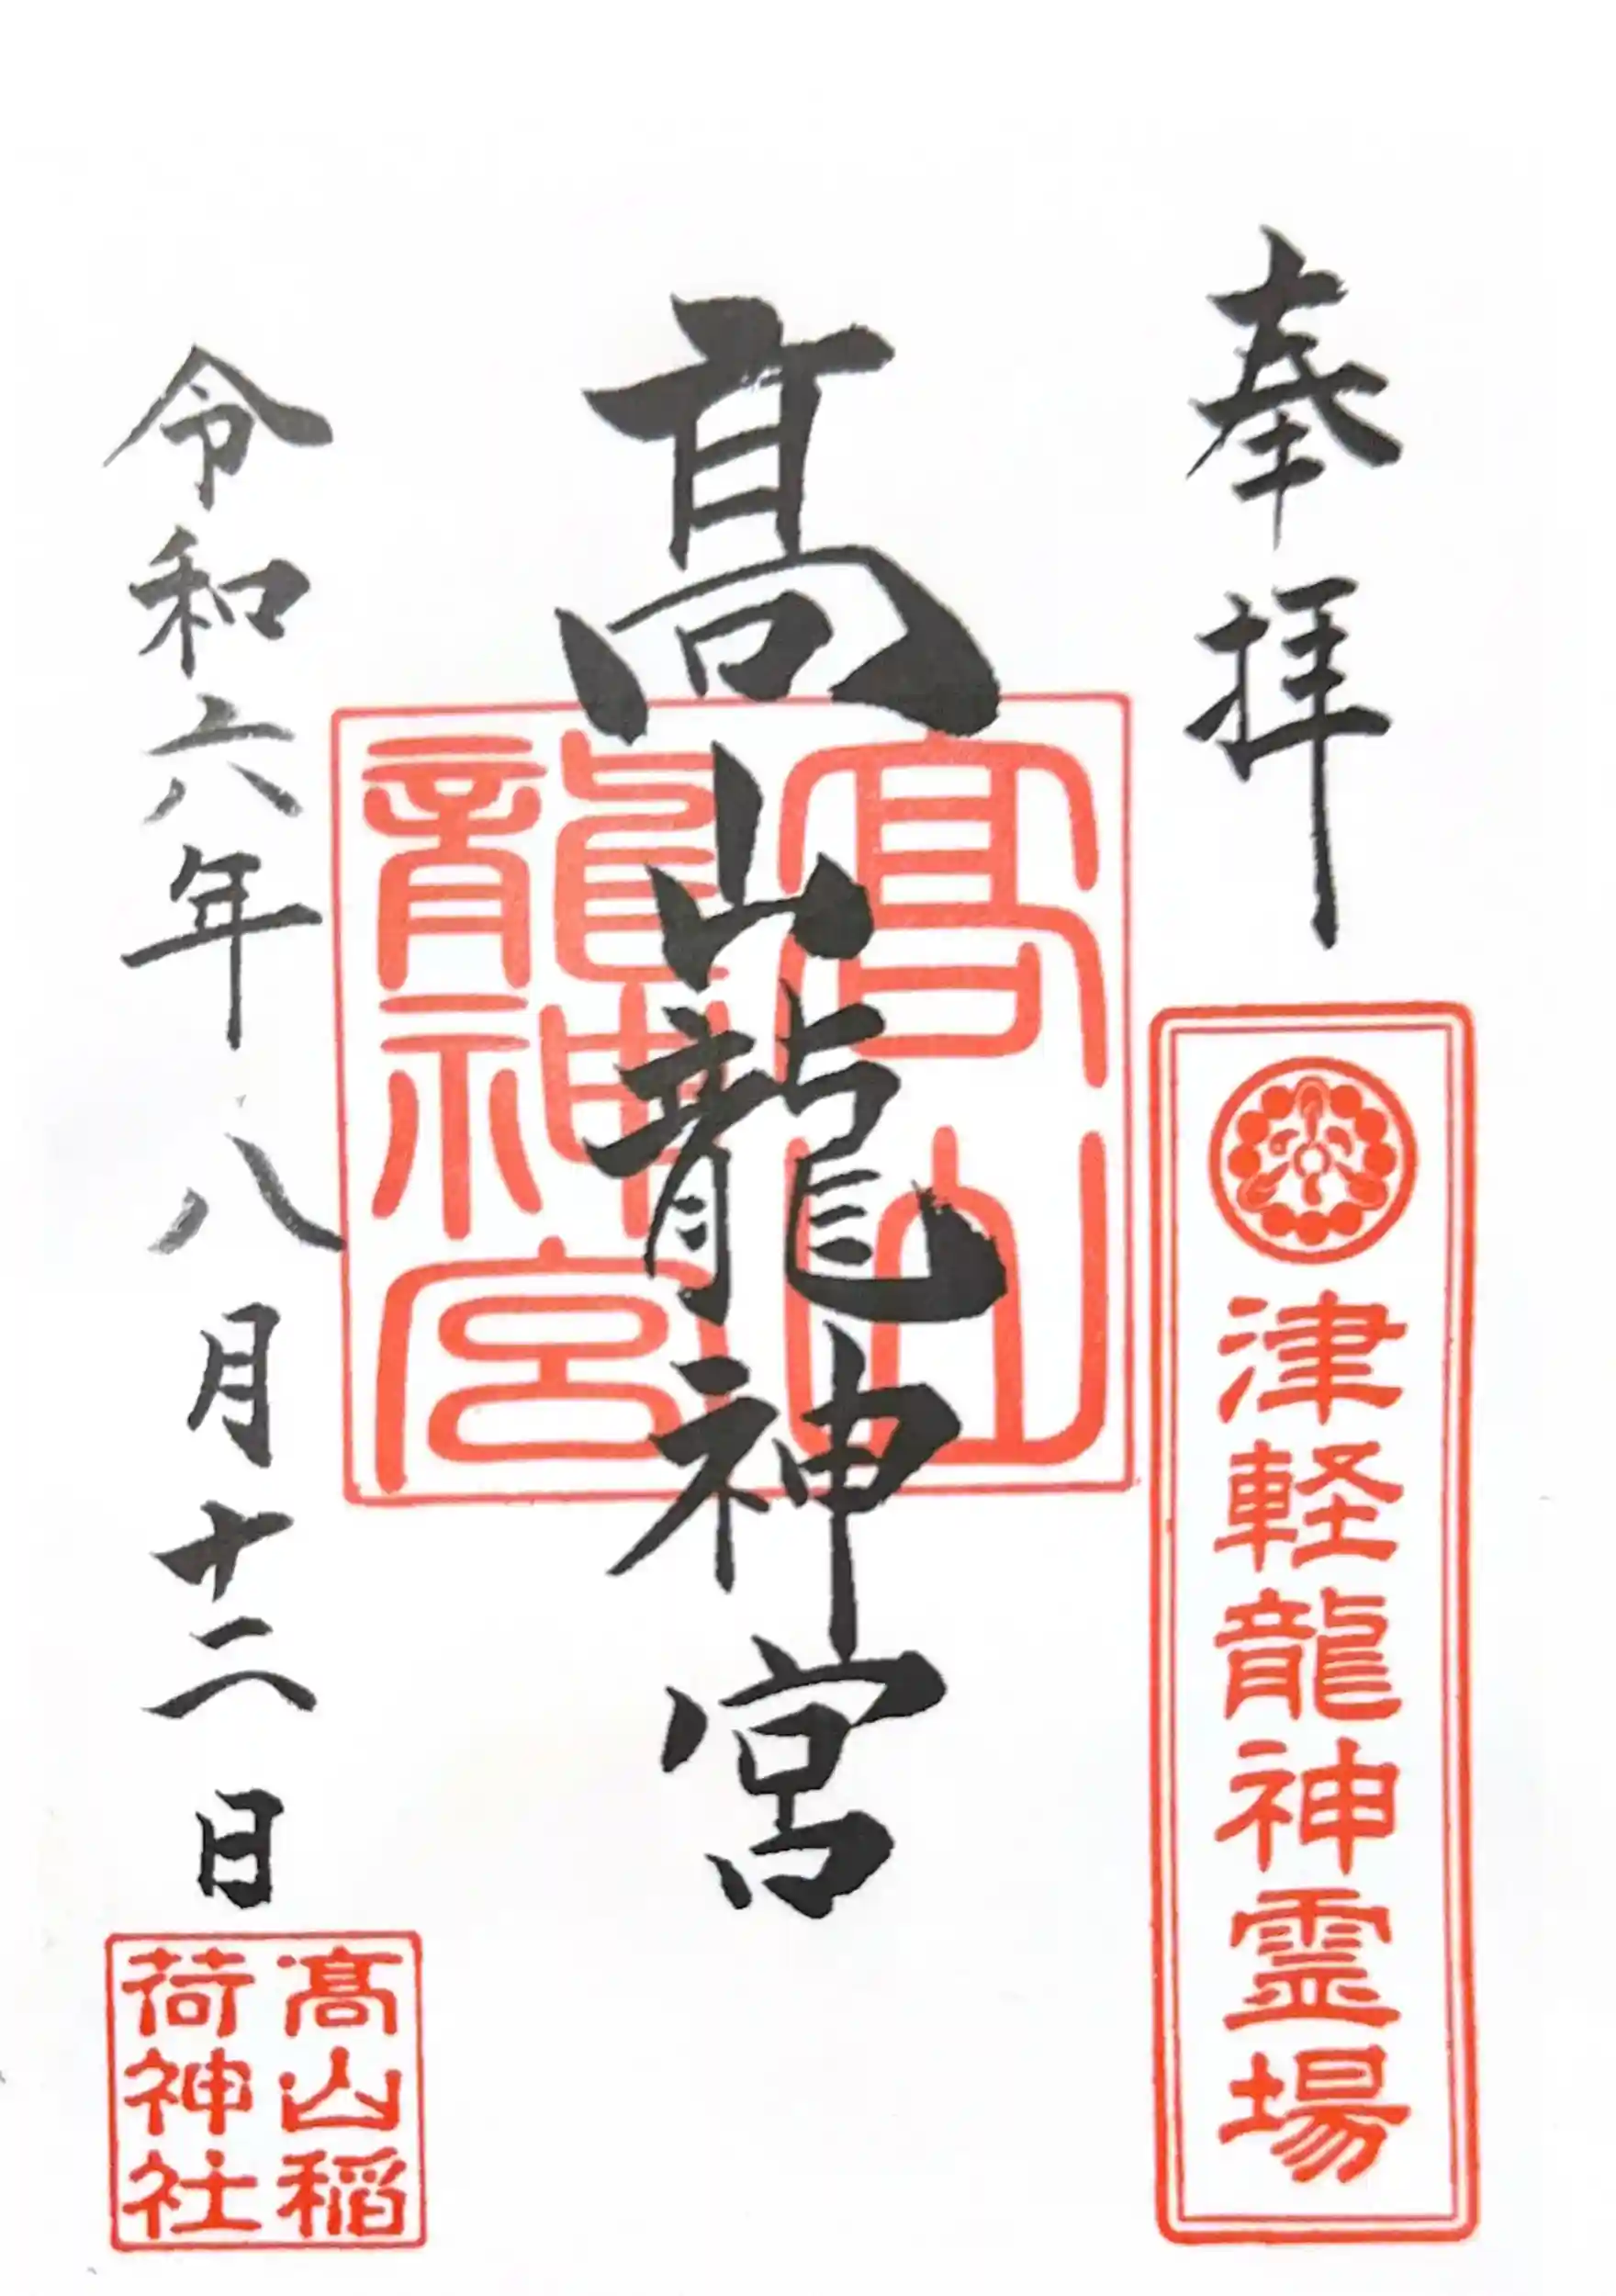 奉拝
津軽龍神霊場
髙山龍神宮
髙山
龍神宮
令和六年八月十二日
髙山稲
荷神社